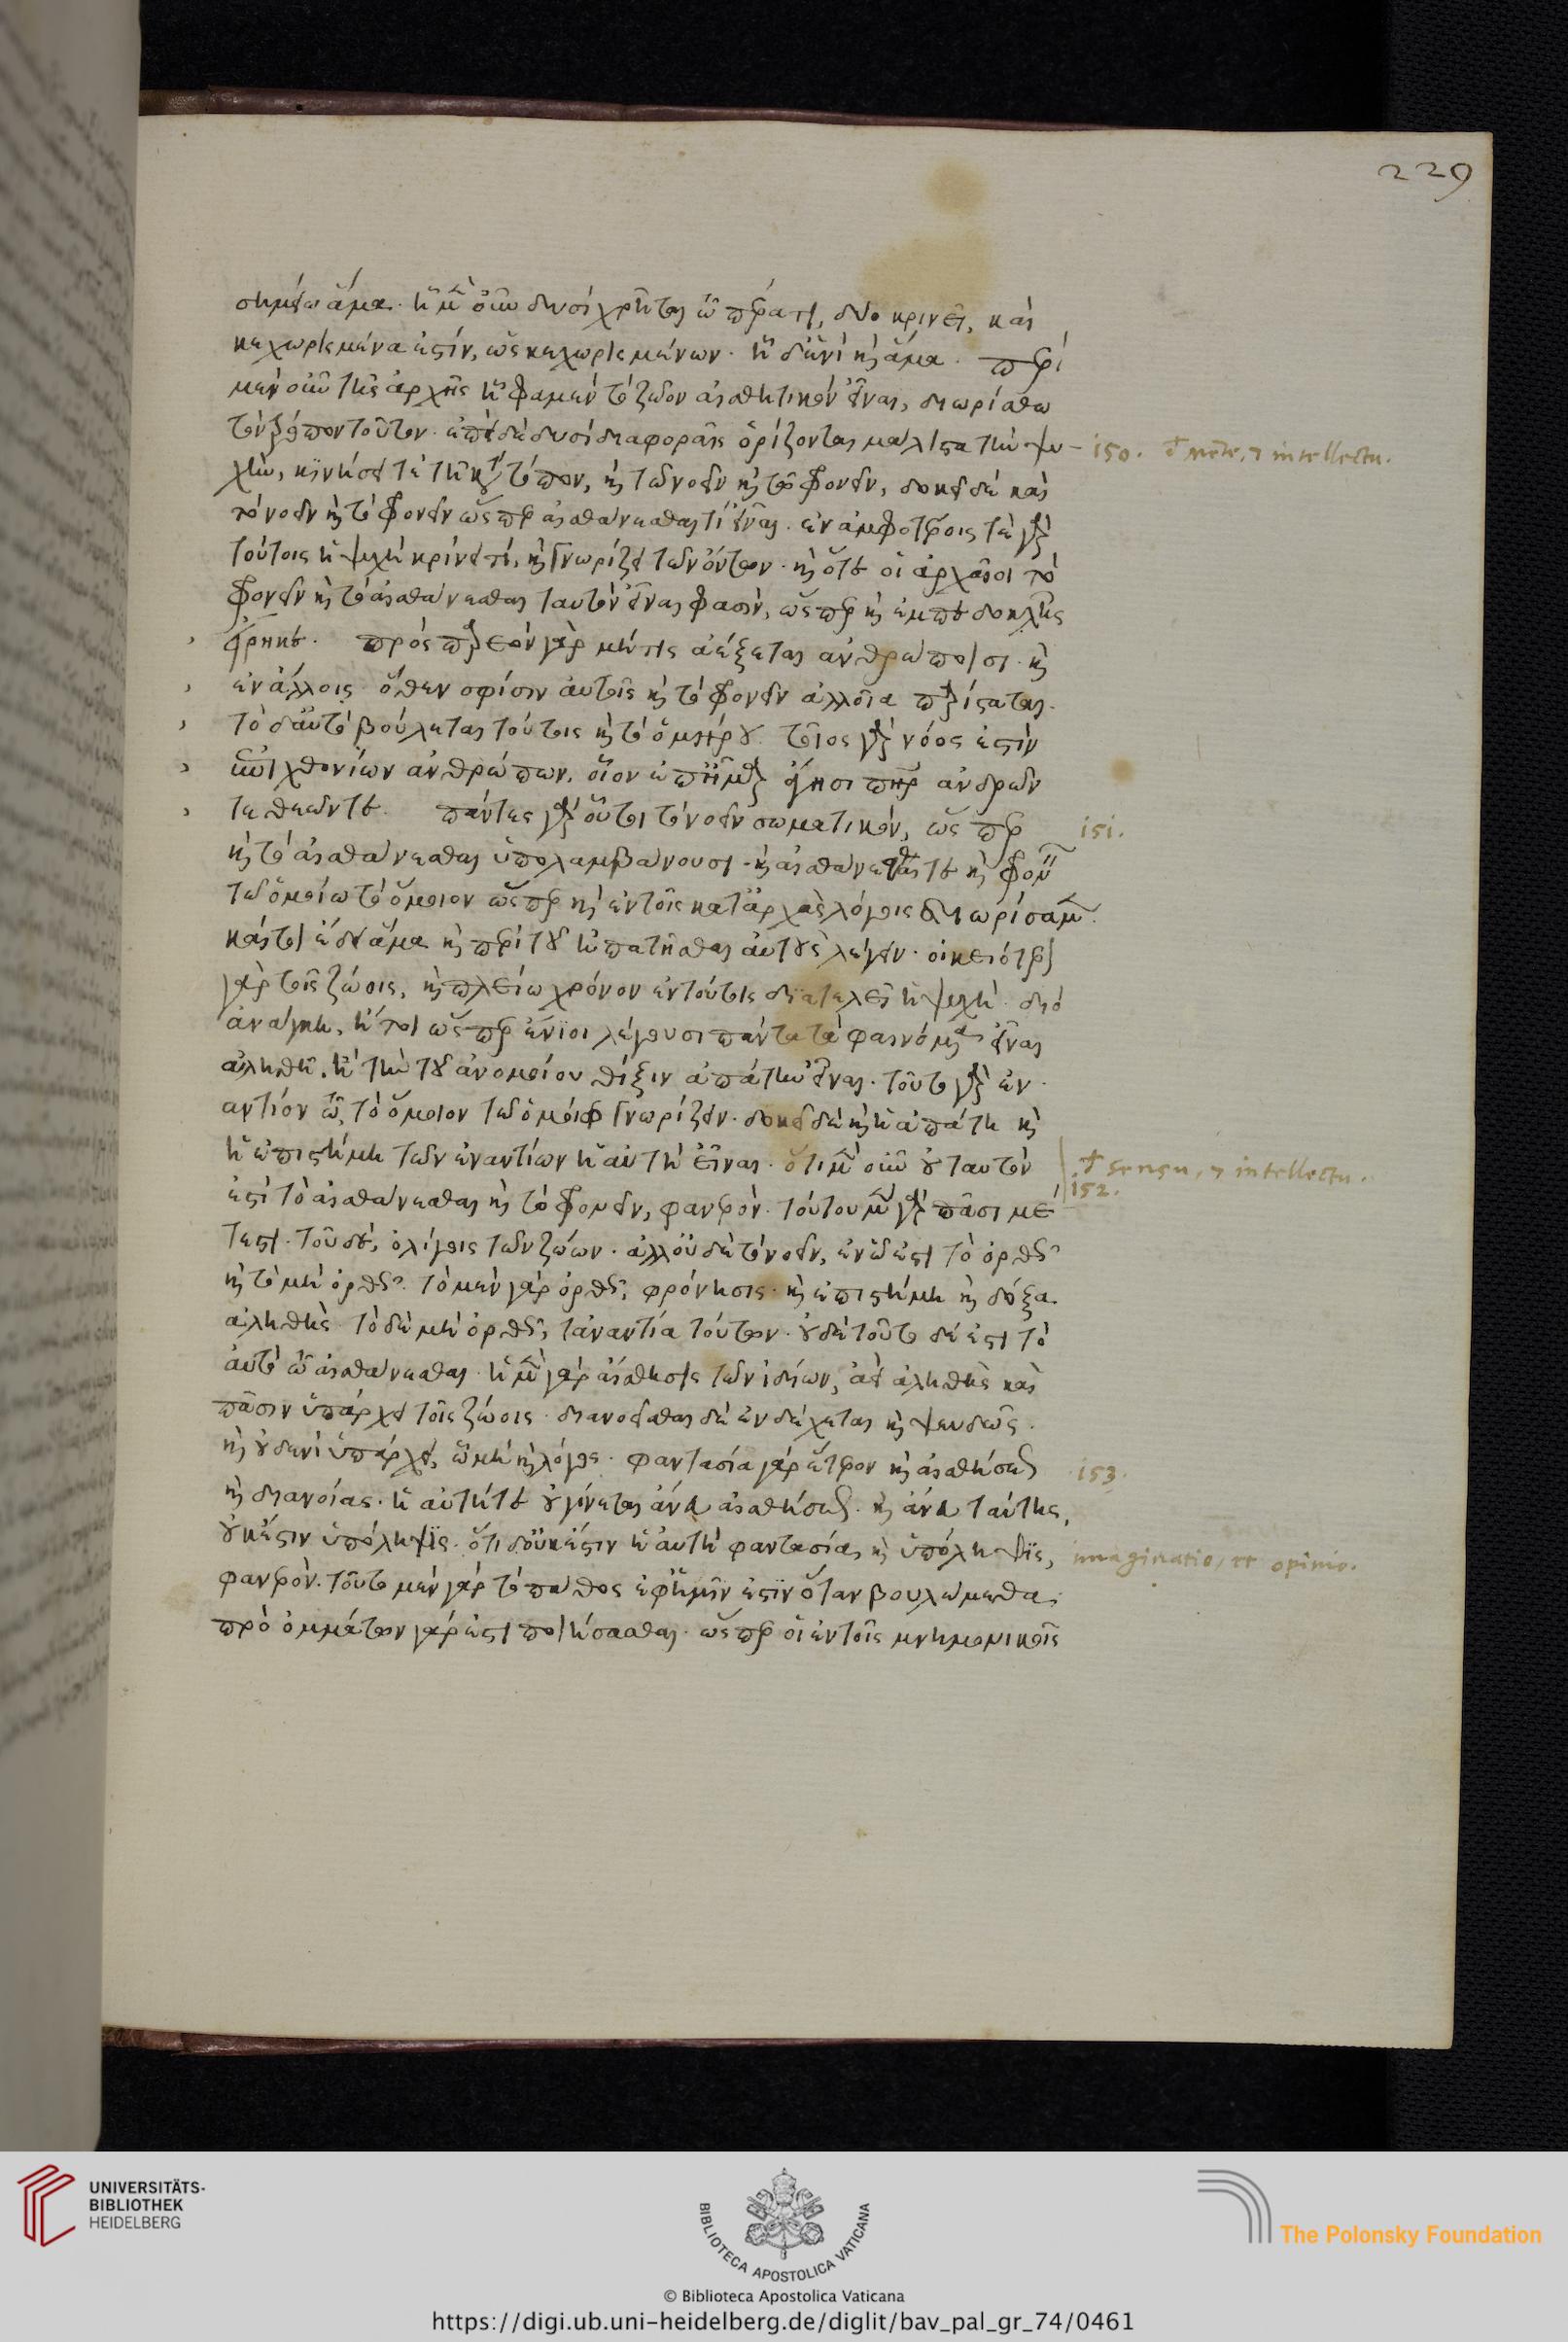 229
σημείω ἅμα. ἧ μὲν οὖν δυσὶ χρῆται ὡ πέρατι, δύο κρινεῖ, καὶ
κεχωρισμένα ἐστίν, ὡς κεχωρισμένων. ἧ δ' ἑνὶ καὶ ἅμα. περὶ
μὲν οὖν τῆς ἀρχῆς ἧ φαμὲν τὸ ζῶον αἰσθητικὸν εἶναι, διωρίσθω
τὸν τρόπον τοῦτον. ἐπεὶ δὲ δυσὶ διαφοραῖς ὁρίζονται μάλιστα τὴν ψυ-
χὴν, κινήσει τε τῆ κατὰ τόπον, καὶ τῶ νοεῖν καὶ τῶ φρονεῖν, δοκεῖ δὲ καὶ
τὸ νοεῖν καὶ τὸ φρονεῖν ὥσπερ αἰσθάνεσθαί τι εἶναι. ἐν ἀμφοτέροις τε γὰρ
τούτοις ἡ ψυχὴ κρίνει τί, καὶ γνωρίζει τῶν ὄντων. καὶ ὅτε οἱ ἀρχαῖοι τὸ
φρονεῖν καὶ τὸ αἰσθάνεσθαι ταυτὸν εἶναι φασὶν, ὥσπερ καὶ ἐμπεδοκλῆς
εἴρηκε. πρὸς παρεὸν γὰρ μῆτις ἀέξεται ἀνθρώποισι. καὶ
ἐν ἄλλοις ὅθεν σφίσιν αὐτοῖς καὶ τὸ φρονεῖν ἀλλοῖα παρίσταται.
τὸ δ' αὐτὸ βούλεται τούτοις καὶ τὸ ὁμήρου. τοῖος γὰρ νόος ἐστὶν
ἐπιχθονίων ἀνθρώπων. οἷον ἐπ' ἦμαρ ἄγησι πατὴρ ἀνδρῶν
τε θεῶντε. πάντες γὰρ οὗτοι τὸ νοεῖν σωματικὸν, ὥσπερ
καὶ τὸ αἰσθάνεσθαι ὑπολαμβάνουσι. καὶ αἰσθάνεσθαί τε καὶ φρονεῖν
τῶ ὁμοίω τὸ ὅμοιον ὥσπερ καὶ ἐν τοῖς κατ' ἀρχὰς λόγοις διωρίσαμεν.
καίτοι ἔδει ἅμα καὶ περὶ τοῦ ἠπατῆσθαι αὐτοὺς λέγειν. οἰκειότερον
γὰρ τοῖς ζώοις, καὶ πλείω χρόνον ἐν τούτοις διατελεῖ ἡ ψυχή. διὸ
ἀνάγκη, ἤτοι ὥσπερ ἔνιοι λέγουσι πάντα τὰ φαινόμενα εἶναι
ἀληθῆ, ἢ τὴν τοῦ ἀνομοίου θίξιν ἀπάτην εἶναι. τοῦτο γὰρ ἐν-
αντίον ὧ, τὸ ὅμοιον τῶ ὁμοίω γνωρίζειν. δοκεῖ δὲ καὶ ἡ ἀπάτη καὶ
ἡ ἐπιστήμη τῶν ἐναντίων ἡ αὐτὴ εἶναι. ὅτι μὲν οὖν οὐ ταυτόν
ἐστι τὸ αἰσθάνεσθαι καὶ τὸ φρονεῖν, φανερόν. τούτου μὲν γὰρ πᾶσι μέ
τεστι. τοῦ δὲ, ὀλίγοις τῶν ζώων. ἀλλ' οὐδὲ τὸ νοεῖν, ἐν ὧ ἐστι τὸ ὀρθῶς
καὶ τὸ μὴ ὀρθῶς. τὸ μὲν γὰρ ὀρθῶς, φρόνησις. καὶ ἐπιστήμη καὶ δόξα
ἀληθής. τὸ δὲ μὴ ὀρθῶς, τἀναντία τούτων. οὐδὲ τοῦτο δέ ἐστι τὸ
αὐτὸ ὧ αἰσθάνεσθαι. ἡ μὲν γὰρ αἴσθησις τῶν ἰδίων, ἀεὶ ἀληθὴς καὶ
πᾶσιν ὑπάρχει τοῖς ζώοις. διανοεῖσθαι δὲ ἐνδέχεται καὶ ψευδῶς.
καὶ οὐδενὶ ὑπάρχει, ὧ μὴ καὶ λόγος. φαντασία γὰρ ἕτερον καὶ αἰσθήσεως
καὶ διανοίας. ἡ αὐτή τε οὐ γίνεται ἄνευ αἰσθήσεως. καὶ ἄνευ ταύτης,
οὐκ ἔστιν ὑπόληψις. ὅτι δ' οὐκ ἔστιν ἡ αὐτὴ φαντασία καὶ ὑπόληψις,
φανερόν. τοῦτο μὲν γὰρ τὸ πάθος ἐφ' ἡμῖν ἐστιν ὅταν βουλώμεθα.
πρὸ ὀμμάτων γάρ ἐστι ποιήσασθαι. ὥσπερ οἱ ἐν τοῖς μνημονικοῖς
150. intellectu.
151.
sensu, intellectu.
152.
153.
imaginatio, et opinio.
UNIVERSITÄTS-
BIBLIOTHEK
HEIDELBERG
BIBLIOTECA APOSTOLICA VATICANA
The Polonsky Foundation
© Biblioteca Apostolica Vaticana
https://digi.ub.uni-heidelberg.de/diglit/bav_pal_gr_74/0461